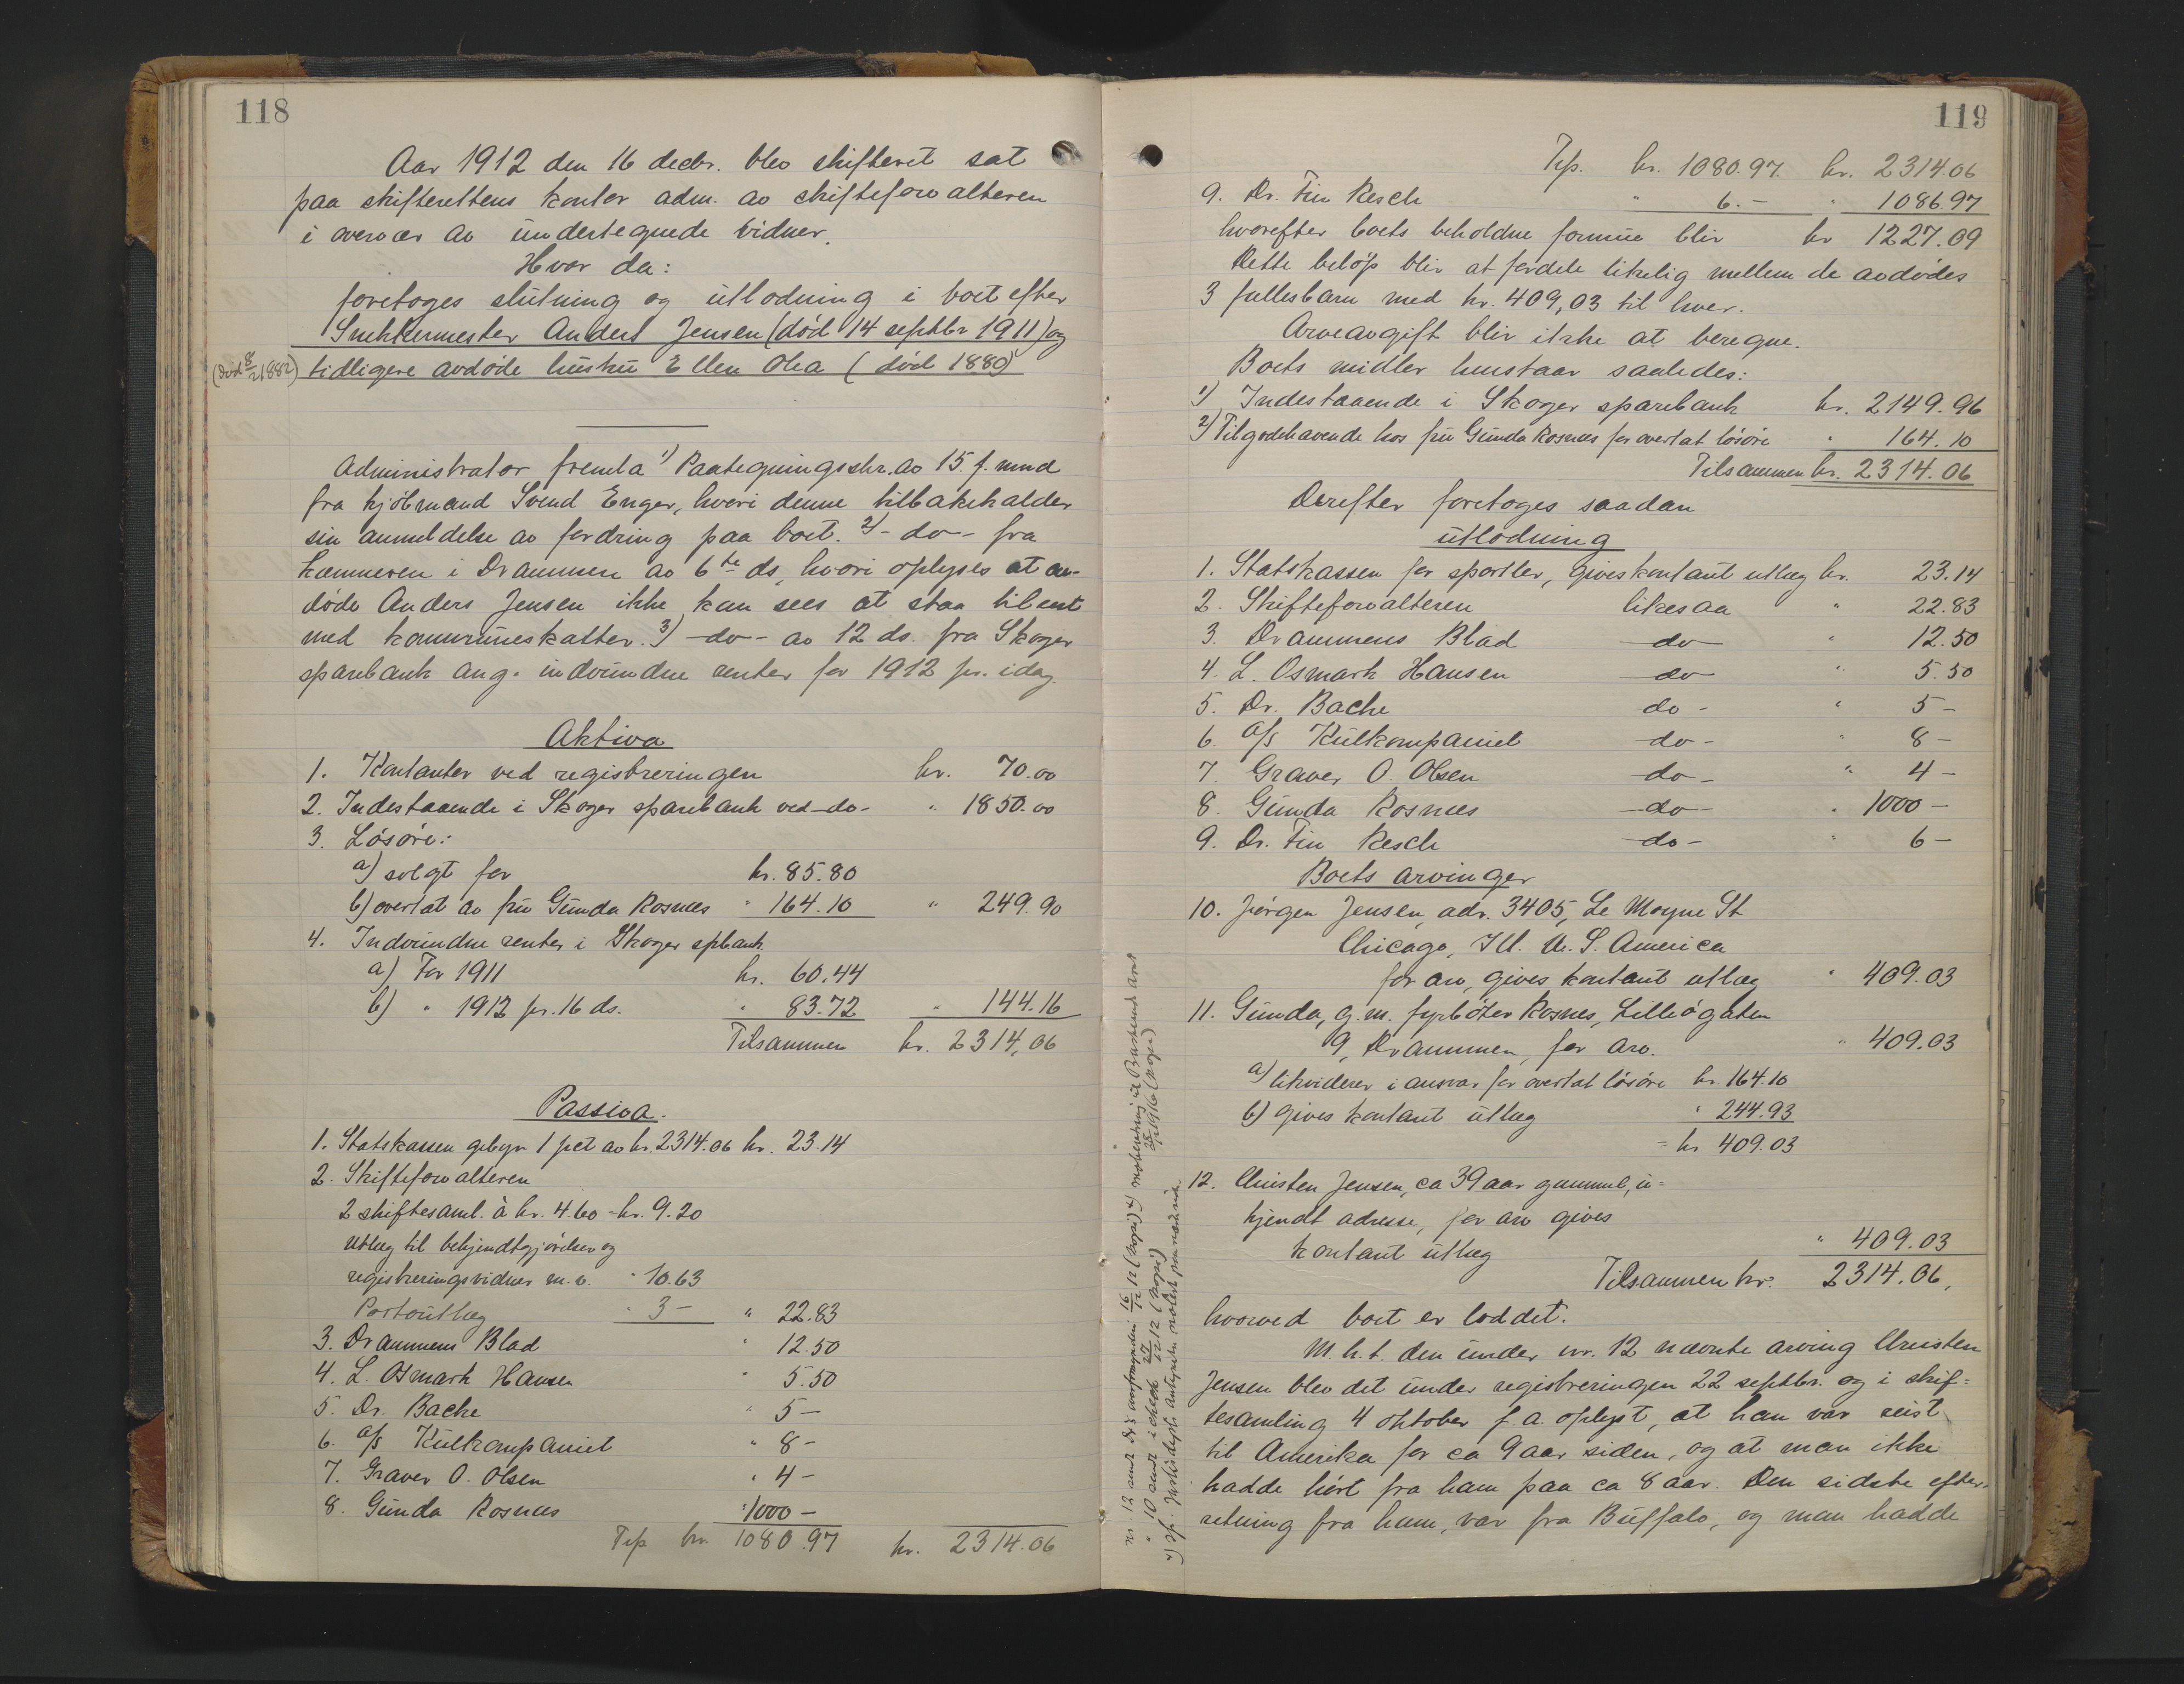 118
Aar 1912 den 16 decbr. blev skifteret sat
paa skifterettens kontor adm. av skifteforvalteren
i overvær av undertegnede vidner.
Hvor da:
foretoges slutning og utlodning i boet efter
Snekkermester Anders Jensen (død 14 septbr 1911) og
(død 8/2 1882) tidligere avdøde hustru Ellen Olea (død 1880)
Administrator fremla 1) Paategningsskr. av 15. f. mnd
fra kjøbmand Svend Enger, hvori denne tilbakekalder
sin anmeldelse av fordring paa boet. 2) - do - fra
kæmneren i Drammen av 6te ds, hvori oplyses at av-
døde Anders Jensen ikke kan sees at staa til rest
med kommuneskatter. 3) - do - av 12 ds. fra Skoger
sparebank ang. indvundne renter for 1912 pr. idag.
Aktiva
1. Kontanter ved registreringen kr. 70.00
2. Indestaaende i Skoger sparebank ved - do - " 1850.00
3. Løsøre:
a) solgt for kr. 85.80
b) overtat av fru Gunda Rosnæs " 164.10 " 249.90
4. Indvundne renter i Skoger spbank.
a) For 1911 kr. 60.44
b) " 1912 pr. 16 ds. " 83.72 " 144.16
Tilsammen kr. 2314,06
Passiva.
1. Statskassen gebyr 1 pct av kr. 2314.06 kr. 23.14
2. Skifteforvalteren
2 skiftesaml. à kr. 4.60 = kr. 9.20
Utlæg til bekjendtgjørelser og
registreringsvidner m. v. " 10.63
Portoutlæg " 3 - " 22.83
3. Drammens Blad " 12.50
4. L. Osmark Hansen " 5.50
5. Dr. Bache " 5 -
6. A/S Kulkompaniet " 8 -
7. Graver O. Olsen " 4 -
8. Gunda Rosnæs " 1000 -
Trp kr. 1080.97 kr. 2314.06
119
Trp. kr. 1080.97 kr. 2314.06
9. Dr. Fin Resch " 6. - " 1086.97
hvorefter boets beholdne formue blir kr 1227.09
Dette beløp blir at fordele likelig mellem de avdødes
3 fællesbarn med kr. 409,03 til hver.
Arveavgift blir ikke at beregne.
Boets midler henstaar saaledes:
1) Indestaaende i Skoger sparebank kr. 2149.96
2) Tilgodehavende hos fru Gunda Rosnæs for overtat løsøre " 164.10
Tilsammen kr. 2314.06
Derefter foretoges saadan
utlodning
1. Statskassen for sportler, gives kontant utlæg kr. 23.14
2. Skifteforvalteren likesaa " 22.83
3. Drammens Blad do " 12.50
4. L. Osmark Hansen do " 5.50
5. Dr. Bache do - " 5 -
6. A/S Kulkompaniet do - " 8 -
7. Graver O. Olsen do - " 4 -
8. Gunda Rosnæs do - " 1000 -
9. Dr. Fin Resch do - " 6 -
Boets arvinger
10. Jørgen Jensen, adr. 3405, Le Moyne St
Chicago, Ill. U. S. America
for arv, gives kontant utlæg " 409.03
11. Gunda, g. m. fyrbøter Rosnes, Lilleøgaten
9, Drammen, for arv. " 409.03
a) likviderer i ansvar for overtat løsøre kr. 164.10
b) gives kontant utlæg " 244.93
= kr 409.03
12. Christen Jensen, ca 39 aar gammel, u=
kjendt adresse, for arv gives
kontant utlæg " 409.03
Tilsammen kr. 2314.06,
hvorved boet er loddet.
M. h. t. den under nr. 12 nævnte arving Christen
Jensen blev det under registreringen 22 septbr. og i skif=
tesamling 4 oktober f. a. oplyst, at han var reist
til Amerika for ca 9 aar siden, og at man ikke
hadde hørt fra ham paa ca 8 aar. Den sidste efter-
retning fra ham, var fra Buffalo, og man hadde
nr. 12 sendt 16/12 12 (kopi)
" 10 sendt i check 27/12 12 (kopi)